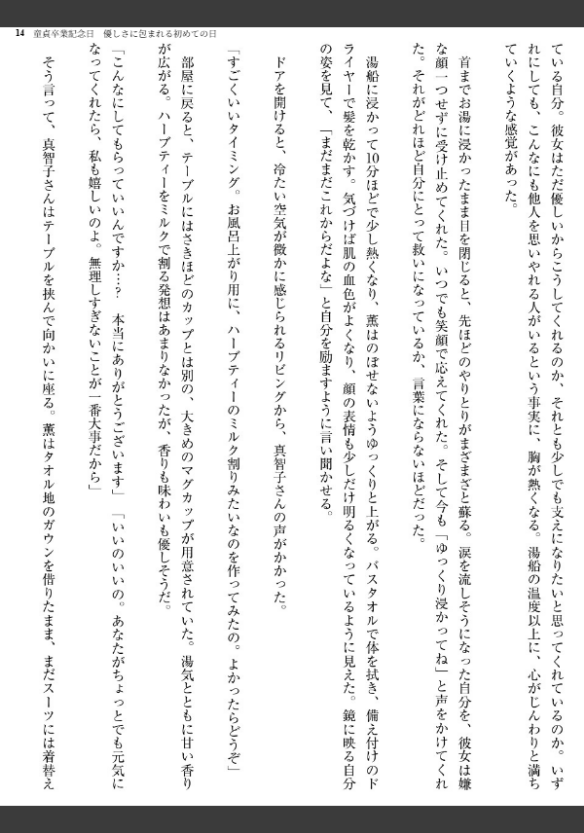 14 童貞卒業記念日 優しさに包まれる初めての日
ている自分。彼女はただ優しいからこうしてくれるのか、それとも少しでも支えになりたいと思ってくれているのか。いず
れにしても、こんなにも他人を思いやれる人がいるという事実に、胸が熱くなる。湯船の温度以上に、心がじんわりと満ち
ていくような感覚があった。
首までお湯に浸かったまま目を閉じると、先ほどのやりとりがまざまざと蘇る。涙を流しそうになった自分を、彼女は嫌
な顔一つせずに受け止めてくれた。いつでも笑顔で応えてくれた。そして今も「ゆっくり浸かってね」と声をかけてくれ
た。それがどれほど自分にとって救いになっているか、言葉にならないほどだった。
湯船に浸かって10分ほどで少し熱くなり、薫はのぼせないようゆっくりと上がる。バスタオルで体を拭き、備え付けのド
ライヤーで髪を乾かす。気づけば肌の血色がよくなり、顔の表情も少しだけ明るくなっているように見えた。鏡に映る自分
の姿を見て、「まだまだこれからだよな」と自分を励ますように言い聞かせる。
ドアを開けると、冷たい空気が微かに感じられるリビングから、真智子さんの声がかかった。
「すごくいいタイミング。お風呂上がり用に、ハーブティーのミルク割りみたいなのを作ってみたの。よかったらどうぞ」
部屋に戻ると、テーブルにはさきほどのカップとは別の、大きめのマグカップが用意されていた。湯気とともに甘い香り
が広がる。ハーブティーをミルクで割る発想はあまりなかったが、香りも味わいも優しそうだ。
「こんなにしてもらっていいんですか…? 本当にありがとうございます」「いいのいいの。あなたがちょっとでも元気に
なってくれたら、私も嬉しいのよ。無理しすぎないことが一番大事だから」
そう言って、真智子さんはテーブルを挟んで向かいに座る。薫はタオル地のガウンを借りたまま、まだスーツには着替え